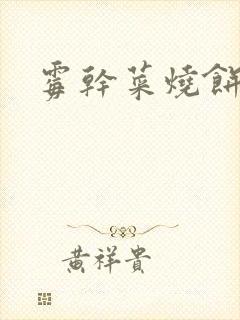 霉幹菜燒餅
黃祥貴